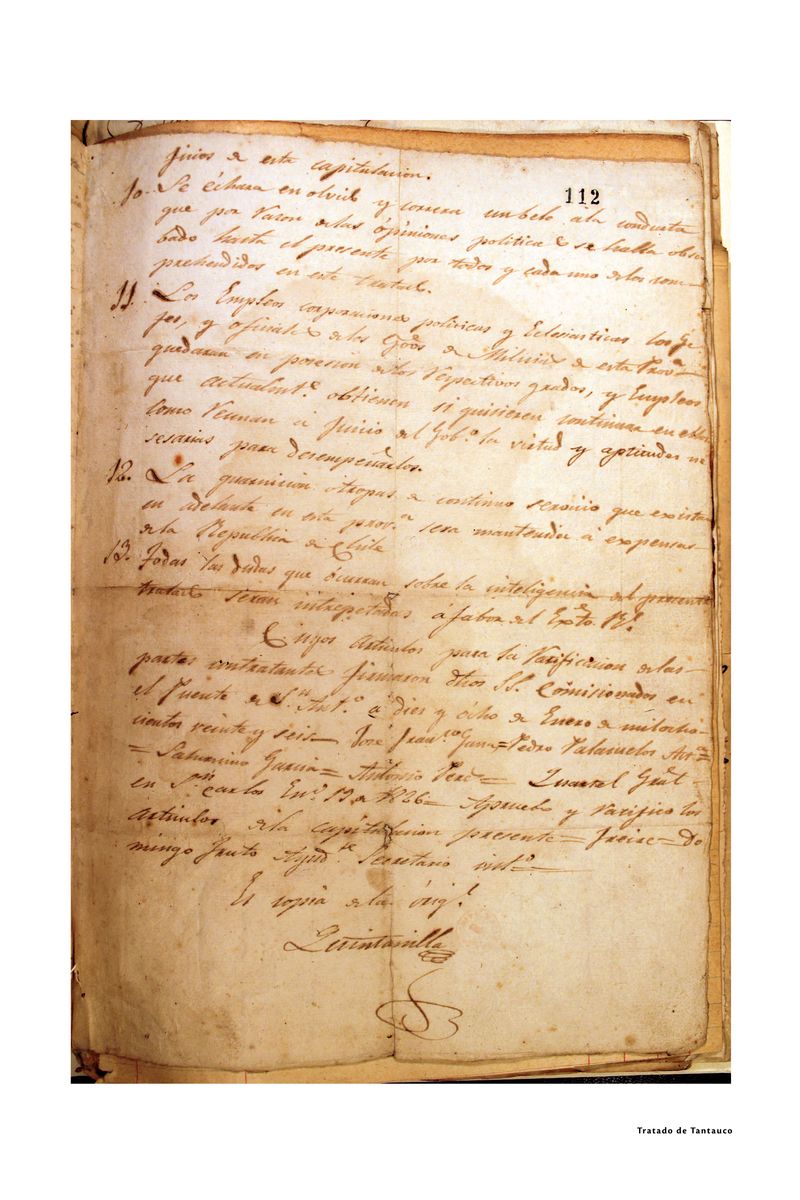 112
juicios de esta capitulacion.
10. Se échara en olvid y correra un belo a la conducta
que por razon de las ópiniones politicas se halla obser
bado hasta el presente por todos y cada uno de los com-
prehendidos en este tratad.
11. Los Empleos corporaciones politicas y Eclesiasticas los Ge
fes, y oficiales de los de Milicias de esta Prov.a
quedaran en posesion de los respectivos grados, y Empleos
que actualmt.e obtienen si quisieren continuar en ellos
como reunan a juicio del Gob.o la virtud y aptitudes ne
sesarias para desempeñarlos.
12. La guarnicion ó tropas de continuo servicio que exista
en adelante en esta prov.a sera mantenida á expensas
de la Republica de Chile
13. Todas las dudas que ócurran sobre la inteligencia del presente
tratad seran intrepetadas á fabor del Exto. Rl.
Cuyos articulos para la ratificacion de las
partes contratantes firmaron dhos SS. Comisionados en
el Fuente de Sn. Anto. á dies y ócho de Enero de mil ocho-
cientos veinte y seis— José Fran.co Gana= Pedro Palazuelos Ast.a=
= Saturnino Garcia= Antonio Perez= Quartel Gral
en Sn Carlos En.o 19 de 1826= Apruebo y ratifico los
articulos de la capitulacion presente= Freire= Do
mingo Fruto Ayud.te Secretario int.o—
Es copia de la órig.l
Quintanilla
Tratado de Tantauco